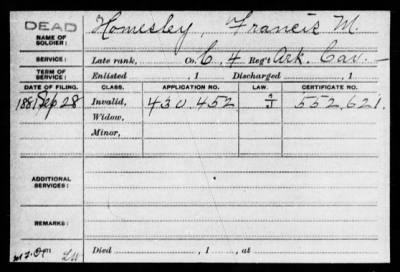 DEAD
NAME OF SOLDIER: Homesley, Francis M.
SERVICE: Late rank, Co. C, 4 Reg't Ark. Cav.
TERM OF SERVICE: Enlisted , 1 Discharged , 1
DATE OF FILING. CLASS. APPLICATION NO. LAW. CERTIFICATE NO.
1881 Sep 28 Invalid, 430,452 J 552,621.
Widow,
Minor,
ADDITIONAL SERVICES:
REMARKS:
Died , 1 , at